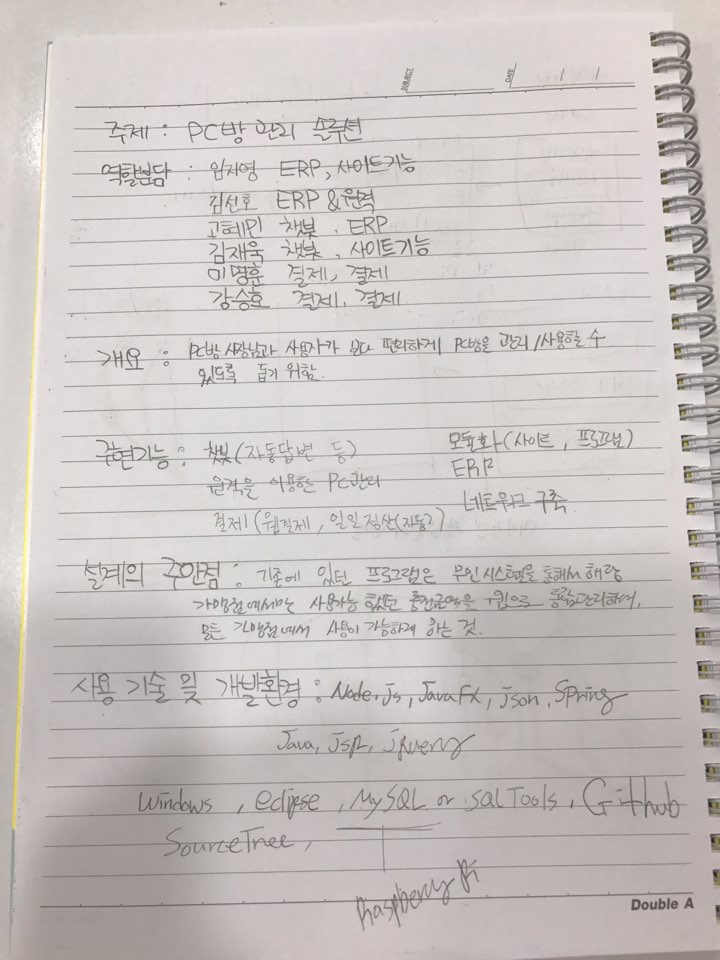 SUBJECT
DATE / /
주제 : PC방 관리 솔루션
역할분담 : 임지영 ERP, 사이트기능
김신호 ERP & 원격
고혜민 챗봇, ERP
김재욱 챗봇, 사이트기능
이명훈 결제, 결제
강승호 결제, 결제
개요 : PC방 사장님과 사용자가 보다 편리하게 PC방을 관리/사용할 수
있도록 돕기 위함.
구현기능 : 챗봇(자동답변 등) 모듈화(사이트, 프로그램)
원격을 이용한 PC관리 ERP
결제(웹결제, 일일정산(자동)) 네트워크 구축
설계의 주안점 : 기존에 있던 프로그램은 무인시스템을 통해서 해당
가맹점에서만 사용가능 했던 충전금액을 웹으로 통합관리하여,
모든 가맹점에서 사용이 가능하게 하는 것.
사용 기술 및 개발환경 : Node.js, JavaFX, json, Spring
Java, jsp, jQuery
windows, eclipse, MySQL or SQLTools, Github
SourceTree,
Raspberry Pi
Double A